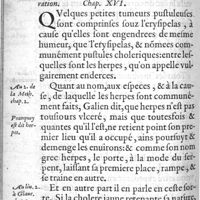 ration. Chap. XVI.
QVelques petites tumeurs pustuleuses
sont comprinses souz l'erysipelas, à
cause qu'elles sont engendrees de mesme
humeur, que l'erysipelas, & nõmees com-
munément pustules choleriques: entre les-
quelles sont les herpes, qu'on appelle vul-
gairement enderces.
Quant au nom, aux especes, & à la cau-
se, de laquelle les herpes sont communé-
ment faits, Galien dit, que herpes n'est pas
tousiours vlceré, mais que toutesfois &
quantes qu'il l'est, ne retient point son pre-
mier lieu qu'il a occupé, ains pourfuyt &
demenge les enuirons: & comme son nom
grec herpes, le porte, à la mode du ser-
pent, laissant sa premiere place, rampe, &
se traine en autre.
Et en autre part il en parle en ceste sor-
te. Si la cholere jaune retenante sa nature
Au 2. de
la Meth.
chap. 2.
Pourquoy
est dit her-
pes.
Au liu. 2.
à Glauc.